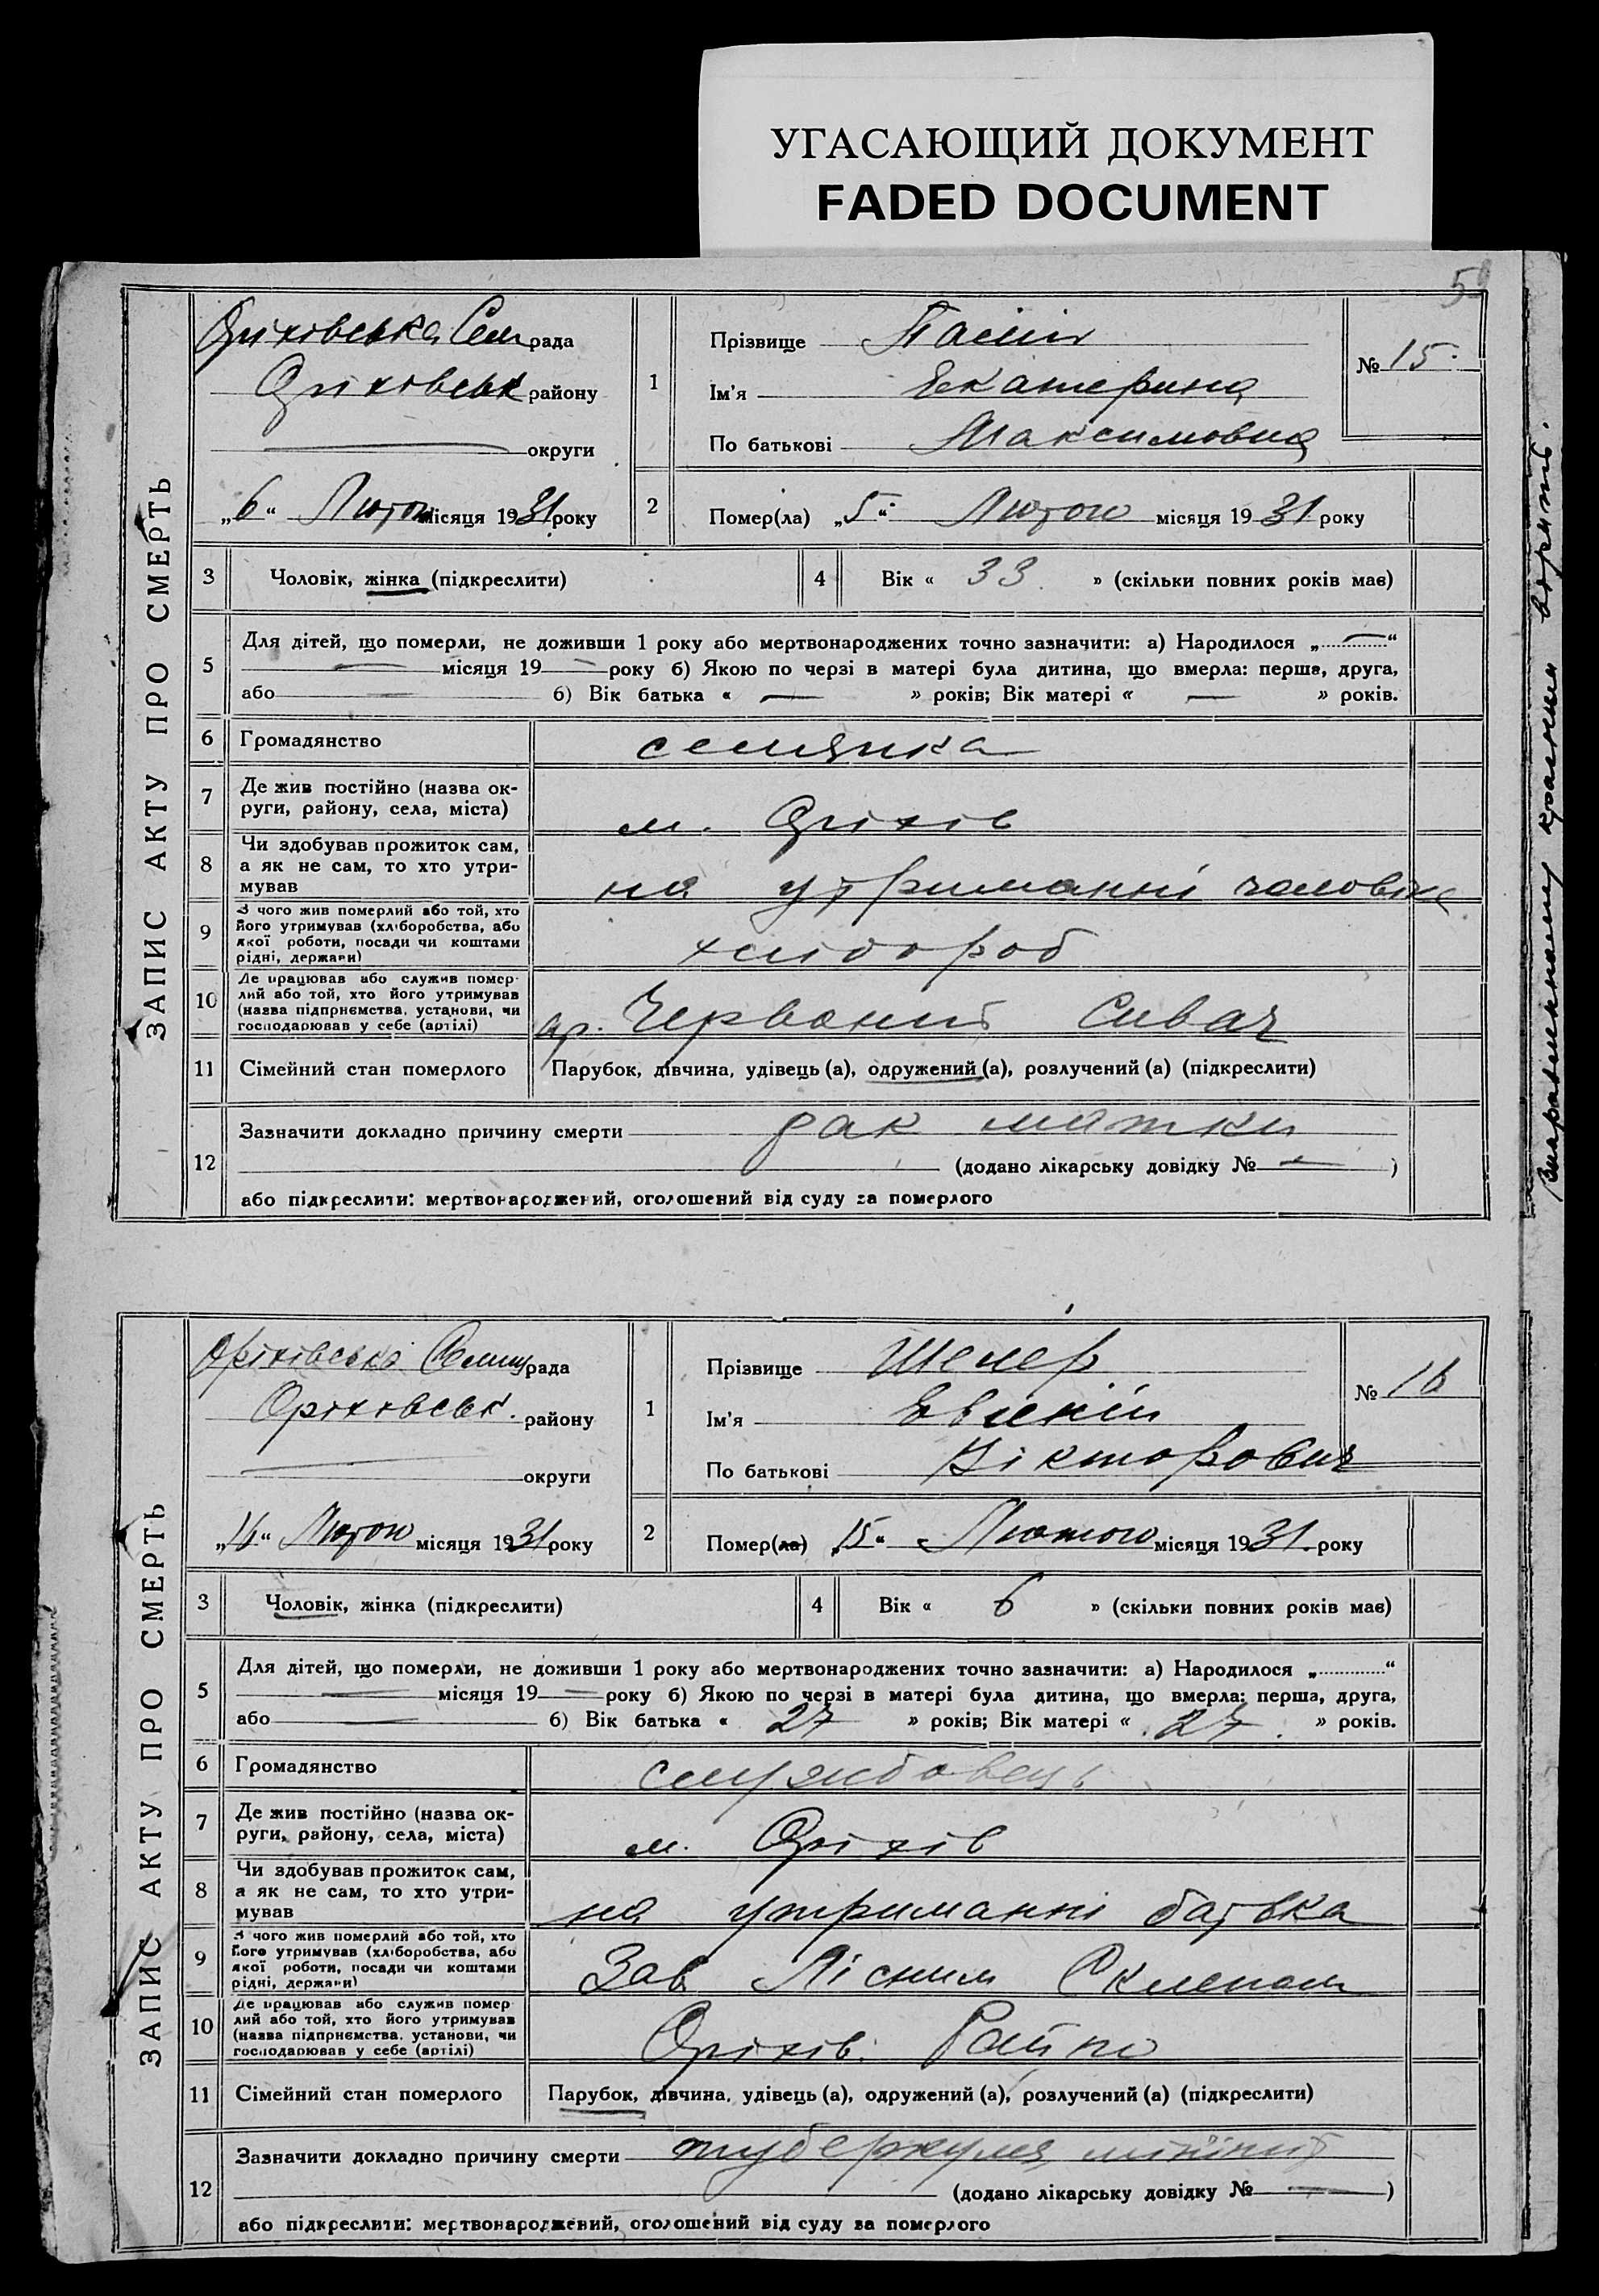 УГАСАЮЩИЙ ДОКУМЕНТ
FADED DOCUMENT
ЗАПИС АКТУ ПРО СМЕРТЬ
Оріховська Сел рада
Оріховськ району
округи
„6“ Лютого місяця 1931 року
1
Прізвище
Ім'я Екатерина
По батькові Максимовна
№ 15
2
Помер(ла) „5“ Лютого місяця 1931 року
3
Чоловік, жінка (підкреслити)
4
Вік « 33 » (скільки повних років має)
5
Для дітей, що померли, не доживши 1 року або мертвонароджених точно зазначити: а) Народилося „—“
— місяця 19— року б) Якою по черзі в матері була дитина, що вмерла: перша, друга,
або — б) Вік батька « — » років; Вік матері « — » років.
6
Громадянство селянка
7
Де жив постійно (назва ок-
руги, району, села, міста)
м. Оріхів
8
Чи здобував прожиток сам,
а як не сам, то хто утри-
мував
на утриманні чоловіка
9
З чого жив померлий або той, хто
його утримував (хліборобства, або
якої роботи, посади чи коштами
рідні, держави)
хлібороб
10
Де працював або служив помер-
лий або той, хто його утримував
(назва підприємства, установи, чи
господарював у себе (артілі)
ар. Червоний Сиваш
11
Сімейний стан померлого
Парубок, дівчина, удівець (а), одружений (а), розлучений (а) (підкреслити)
12
Зазначити докладно причину смерти рак матки
(додано лікарську довідку № — )
або підкреслити: мертвонароджений, оголошений від суду за померлого
ЗАПИС АКТУ ПРО СМЕРТЬ
Оріхівська Селищ рада
Оріховськ. району
округи
„16“ Лютого місяця 1931 року
1
Прізвище Шелер
Ім'я Євгеній
По батькові Вікторович
№ 16
2
Помер(ла) „15“ Лютого місяця 1931 року
3
Чоловік, жінка (підкреслити)
4
Вік « 6 » (скільки повних років має)
5
Для дітей, що померли, не доживши 1 року або мертвонароджених точно зазначити: а) Народилося „“
— місяця 19— року б) Якою по черзі в матері була дитина, що вмерла: перша, друга,
або — б) Вік батька « 27 » років; Вік матері « 27 » років.
6
Громадянство службовець
7
Де жив постійно (назва ок-
руги, району, села, міста)
м. Оріхів
8
Чи здобував прожиток сам,
а як не сам, то хто утри-
мував
на утриманні батька
9
З чого жив померлий або той, хто
його утримував (хліборобства, або
якої роботи, посади чи коштами
рідні, держави)
Зав Лісним Склепом
10
Де працював або служив помер-
лий або той, хто його утримував
(назва підприємства, установи, чи
господарював у себе (артілі)
Оріхів. Райпо
11
Сімейний стан померлого
Парубок, дівчина, удівець (а), одружений (а), розлучений (а) (підкреслити)
12
Зазначити докладно причину смерти
(додано лікарську довідку № — )
або підкреслити: мертвонароджений, оголошений від суду за померлого